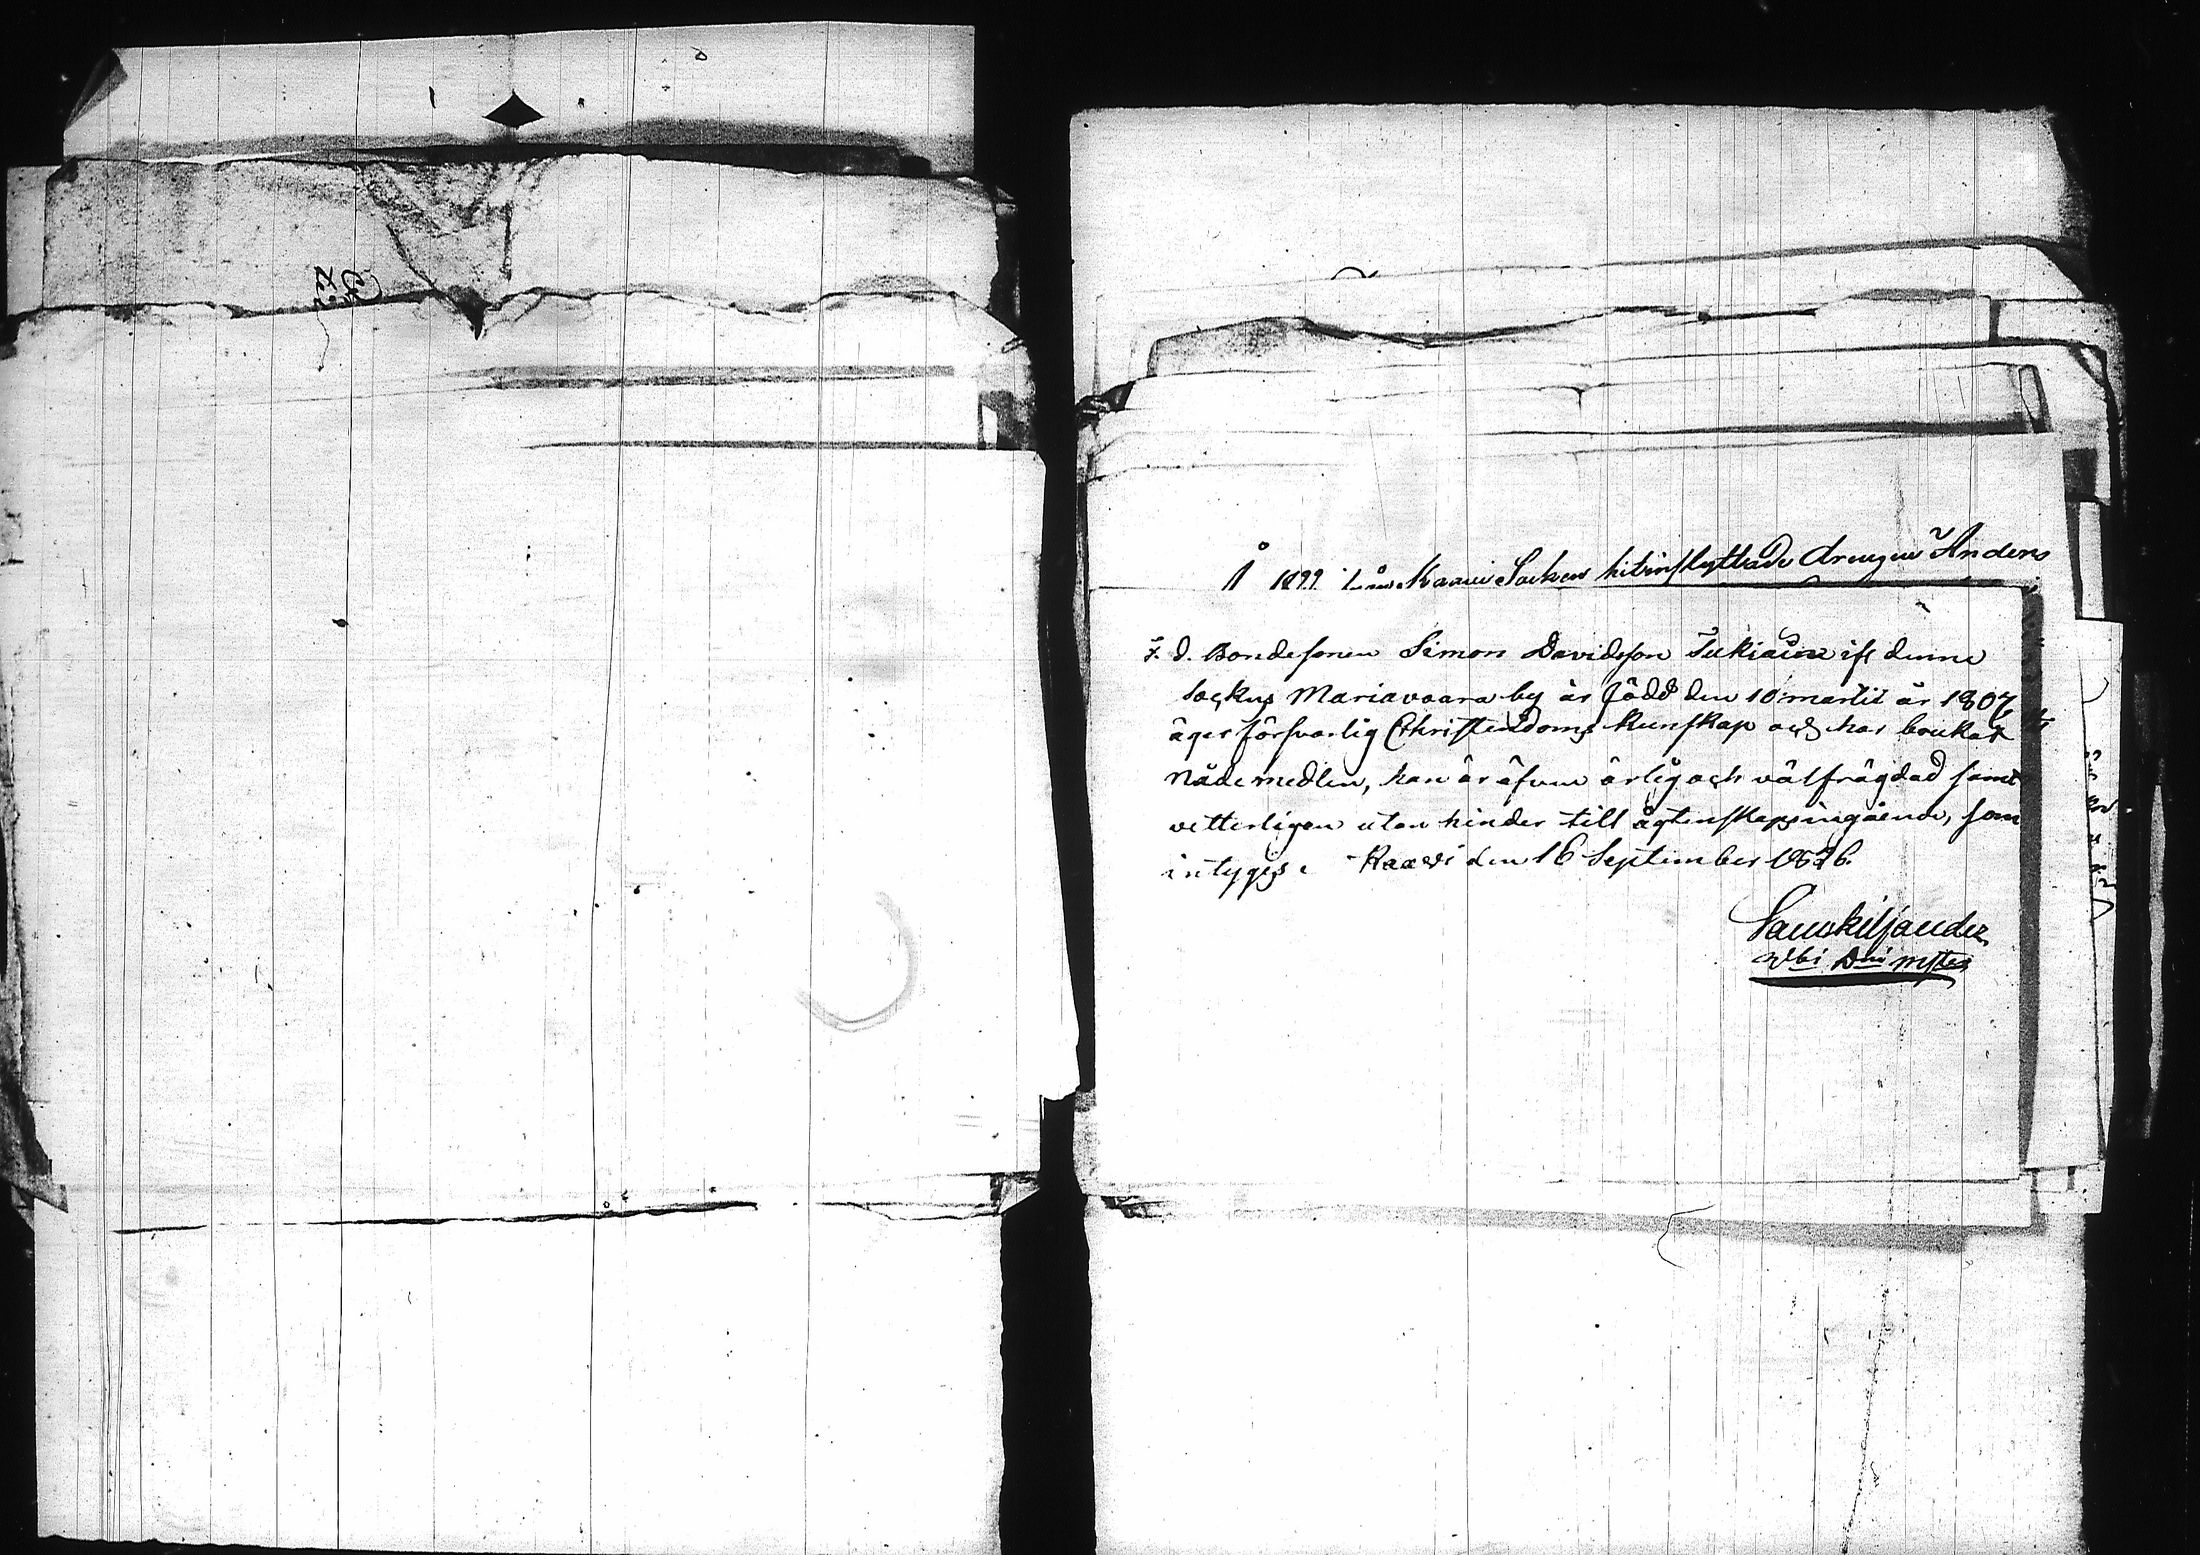 Å 1822 från Kaavi Socken hitinflyttade drengen Anders
F. d. Bondesonen Simon Davidsson Tukiain ifr denne
Sockns Mariavaara by är född den 10 martii år 1807,
äger försvarlig Christendoms kunskap och har brukat
Nådemedlen, han är äfven ärlig och välfrägdad samt
vetterligen utan hinder till ägtenskaps ingående, som
intygas. Kaavi den 16 September 1826.